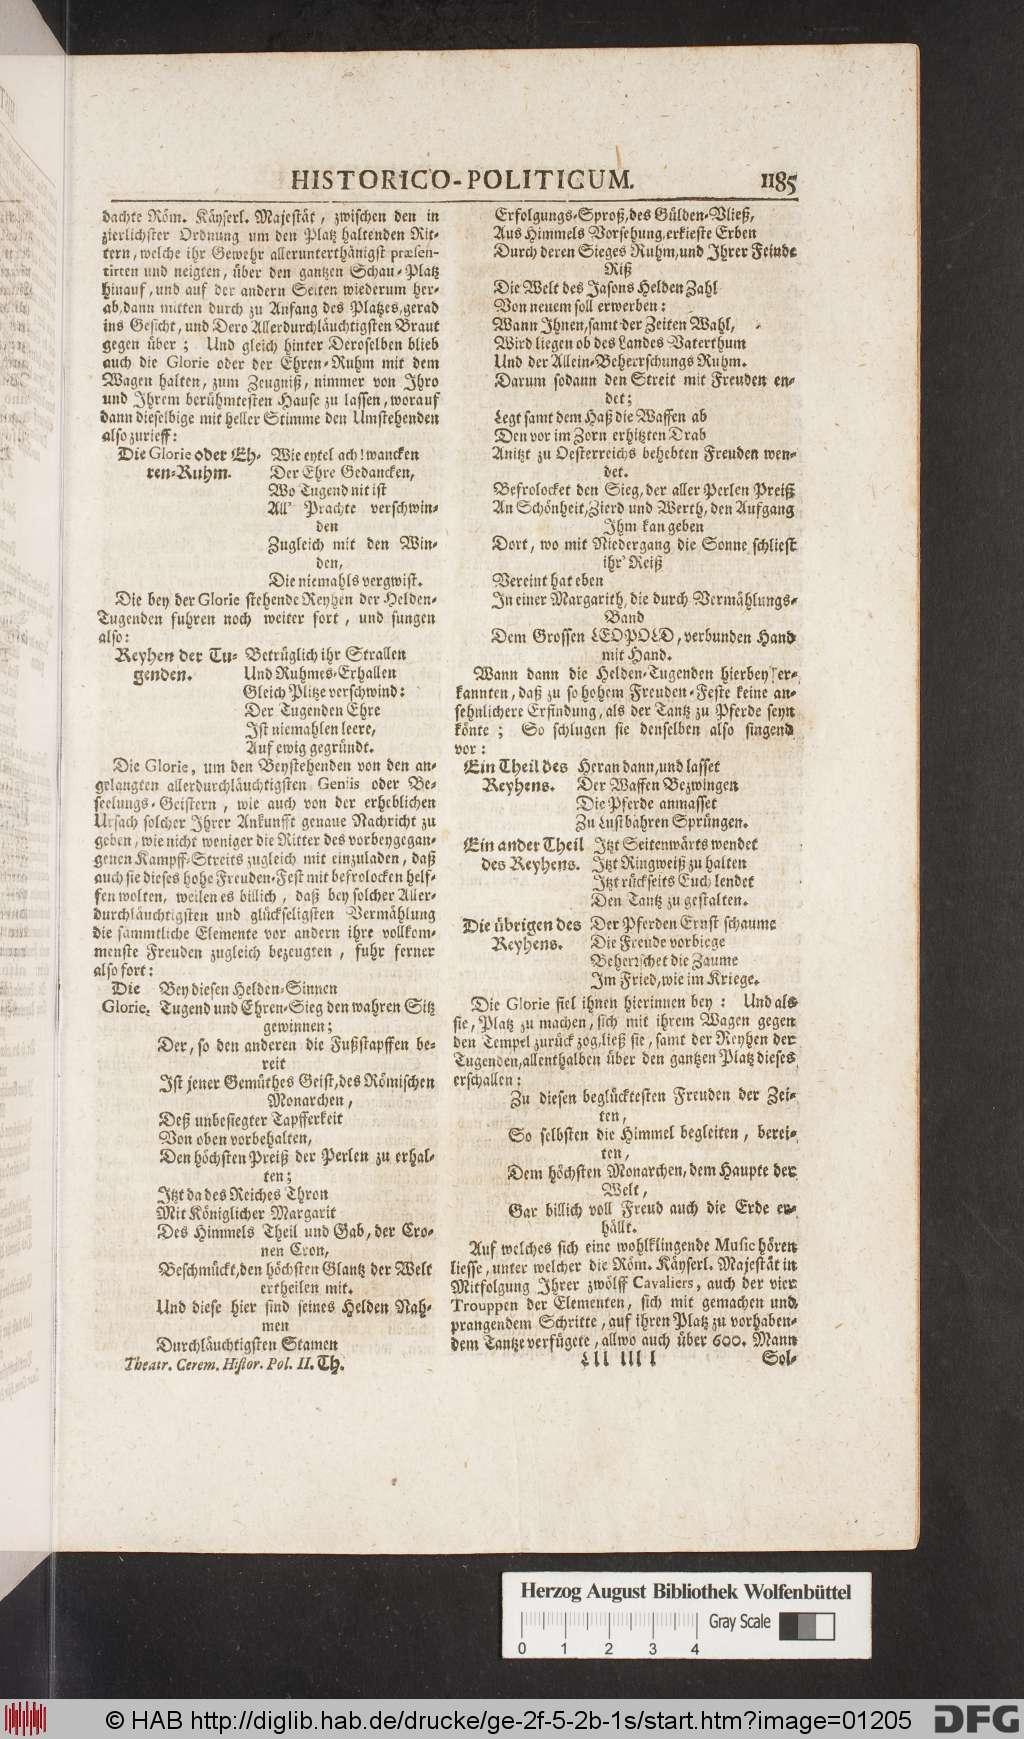 HISTORICO-POLITICUM. 1185
dachte Röm. Käyserl. Majestät, zwischen den in
zierlichster Ordnung um den Platz haltenden Rit-
tern, welche ihr Gewehr allerunterthänigst præsen-
tirten und neigten, über den gantzen Schau-Platz
hinauf, und auf der andern Seiten wiederum her-
ab, dann mitten durch zu Anfang des Platzes, gerad
ins Gesicht, und Dero Allerdurchläuchtigsten Braut
gegen über; Und gleich hinter Deroselben blieb
auch die Glorie oder der Ehren-Ruhm mit dem
Wagen halten, zum Zeugniß, nimmer von Ihro
und Ihrem berühmtesten Hause zu lassen, worauf
dann dieselbige mit heller Stimme den Umstehenden
also zurieff:
Die Glorie oder Eh- Wie eytel ach! wancken
ren-Ruhm. Der Ehre Gedancken,
Wo Tugend nit ist
All' Prachte verschwin-
den
Zugleich mit den Win-
den,
Die niemahls vergwist.
Die bey der Glorie stehende Reyhen der Helden-
Tugenden fuhren noch weiter fort, und sungen
also:
Reyhen der Tu- Betrüglich ihr Strallen
genden. Und Ruhmes-Erhallen
Gleich Plitze verschwind:
Der Tugenden Ehre
Ist niemahlen leere,
Auf ewig gegründt.
Die Glorie, um den Beystehenden von den an-
gelangten allerdurchläuchtigsten Geniis oder Be-
seelungs-Geistern, wie auch von der erheblichen
Ursach solcher Ihrer Ankunfft genaue Nachricht zu
geben, wie nicht weniger die Ritter des vorbeygegan-
genen Kampff-Streits zugleich mit einzuladen, daß
auch sie dieses hohe Freuden-Fest mit befrolocken helf-
fen wolten, weilen es billich, daß bey solcher Aller-
durchläuchtigsten und glückseligsten Vermählung
die sämmtliche Elemente vor andern ihre vollkom-
menste Freuden zugleich bezeugten, fuhr ferner
also fort:
Die Bey diesen Helden-Sinnen
Glorie. Tugend und Ehren-Sieg den wahren Sitz
gewinnen;
Der, so den anderen die Fußstapffen be-
reit
Ist jener Gemüthes Geist, des Römischen
Monarchen,
Deß unbesiegter Tapfferkeit
Von oben vorbehalten,
Den höchsten Preiß der Perlen zu erhal-
ten;
Itzt da des Reiches Thron
Mit Königlicher Margarit
Des Himmels Theil und Gab, der Cro-
nen Cron,
Beschmückt, den höchsten Glantz der Welt
ertheilen mit.
Und diese hier sind seines Helden Nah-
men
Durchläuchtigsten Stamen
Theatr. Cerem. Histor. Pol. II. Th.
Erfolgungs-Sproß, des Gülden-Vließ,
Aus Himmels Vorsehung, erkieste Erben
Durch deren Sieges Ruhm, und Ihrer Feinde
Riß
Die Welt des Jasons Helden Zahl
Von neuem soll erwerben:
Wann Ihnen, samt der Zeiten Wahl,
Wird liegen ob des Landes Vaterthum
Und der Allein-Beherrschungs Ruhm.
Darum sodann den Streit mit Freuden en-
det;
Legt samt dem Haß die Waffen ab
Den vor im Zorn erhitzten Trab
Anitzt zu Oesterreichs behebten Freuden wen-
det.
Befrolocket den Sieg, der aller Perlen Preiß
An Schönheit, Zierd und Werth, den Aufgang
Ihm kan geben
Dort, wo mit Niedergang die Sonne schliest
ihr' Reiß
Vereint hat eben
In einer Margarith, die durch Vermählungs-
Band
Dem Grossen LEOPOLD, verbunden Hand
mit Hand.
Wann dann die Helden-Tugenden hierbey er-
kannten, daß zu so hohem Freuden-Feste keine an-
sehnlichere Erfindung, als der Tantz zu Pferde seyn
könte; So schlugen sie denselben also singend
vor:
Ein Theil des Heran dann, und lasset
Reyhens. Der Waffen Bezwingen
Die Pferde anmasset
Zu Lustbahren Sprüngen.
Ein ander Theil Itzt Seitenwärts wendet
des Reyhens. Itzt Ringweiß zu halten
Itzt rückseits Euch lendet
Den Tantz zu gestalten.
Die übrigen des Der Pferden Ernst schaume
Reyhens. Die Freude vorbiege
Beherrschet die Zaume
Im Fried, wie im Kriege.
Die Glorie fiel ihnen hierinnen bey: Und als
sie, Platz zu machen, sich mit ihrem Wagen gegen
den Tempel zurück zog, ließ sie, samt der Reyhen der
Tugenden, allenthalben über den gantzen Platz dieses
erschallen:
Zu diesen beglücktesten Freuden der Zei-
ten,
So selbsten die Himmel begleiten, berei-
ten,
Dem höchsten Monarchen, dem Haupte der
Welt,
Gar billich voll Freud auch die Erde er-
hällt.
Auf welches sich eine wohlklingende Music hören
liesse, unter welcher die Röm. Käyserl. Majestät in
Mitfolgung Ihrer zwölff Cavaliers, auch der vier
Trouppen der Elementen, sich mit gemachen und
prangendem Schritte, auf ihren Platz zu vorhaben-
dem Tantze verfügete, allwo auch über 600. Mann
Lll lll l Sol-
Herzog August Bibliothek Wolfenbüttel
Gray Scale
0 1 2 3 4
© HAB http://diglib.hab.de/drucke/ge-2f-5-2b-1s/start.htm?image=01205 DFG